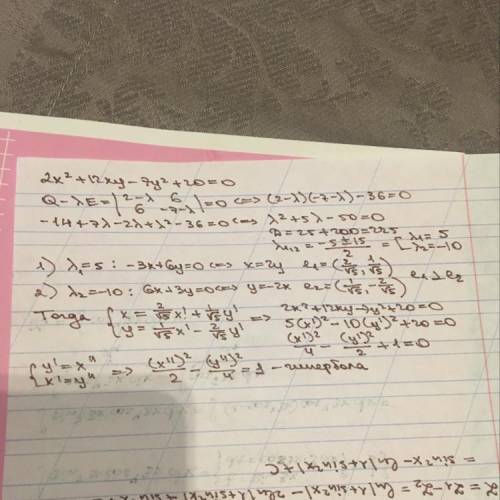 2x² + 12xy - 7y² + 20 = 0
Q - λE = |2-λ 6; 6 -7-λ| = 0 <=> (2-λ)(-7-λ) - 36 = 0
-14 + 7λ - 2λ + λ² - 36 = 0 <=> λ² + 5λ - 50 = 0
D = 25 + 200 = 225
λ₁,₂ = (-5 ± 15)/2 = [λ₁ = 5 λ₂ = -10
1) λ₁ = 5 : -3x + 6y = 0 <=> x = 2y e₁ = (2/√5, 1/√5)
e₁ ⊥ e₂
2) λ₂ = -10 : 6x + 3y = 0 <=> y = -2x e₂ = (1/√5, -2/√5)
Тогда {x = 2/√5 x' + 1/√5 y' y = 1/√5 x' - 2/√5 y' => 2x² + 12xy - 7y² + 20 = 0
5(x')² - 10(y')² + 20 = 0
(x')²/4 - (y')²/2 + 1 = 0
{y' = x'' x' = y'' => (x'')²/2 - (y'')²/4 = 1 - гипербола